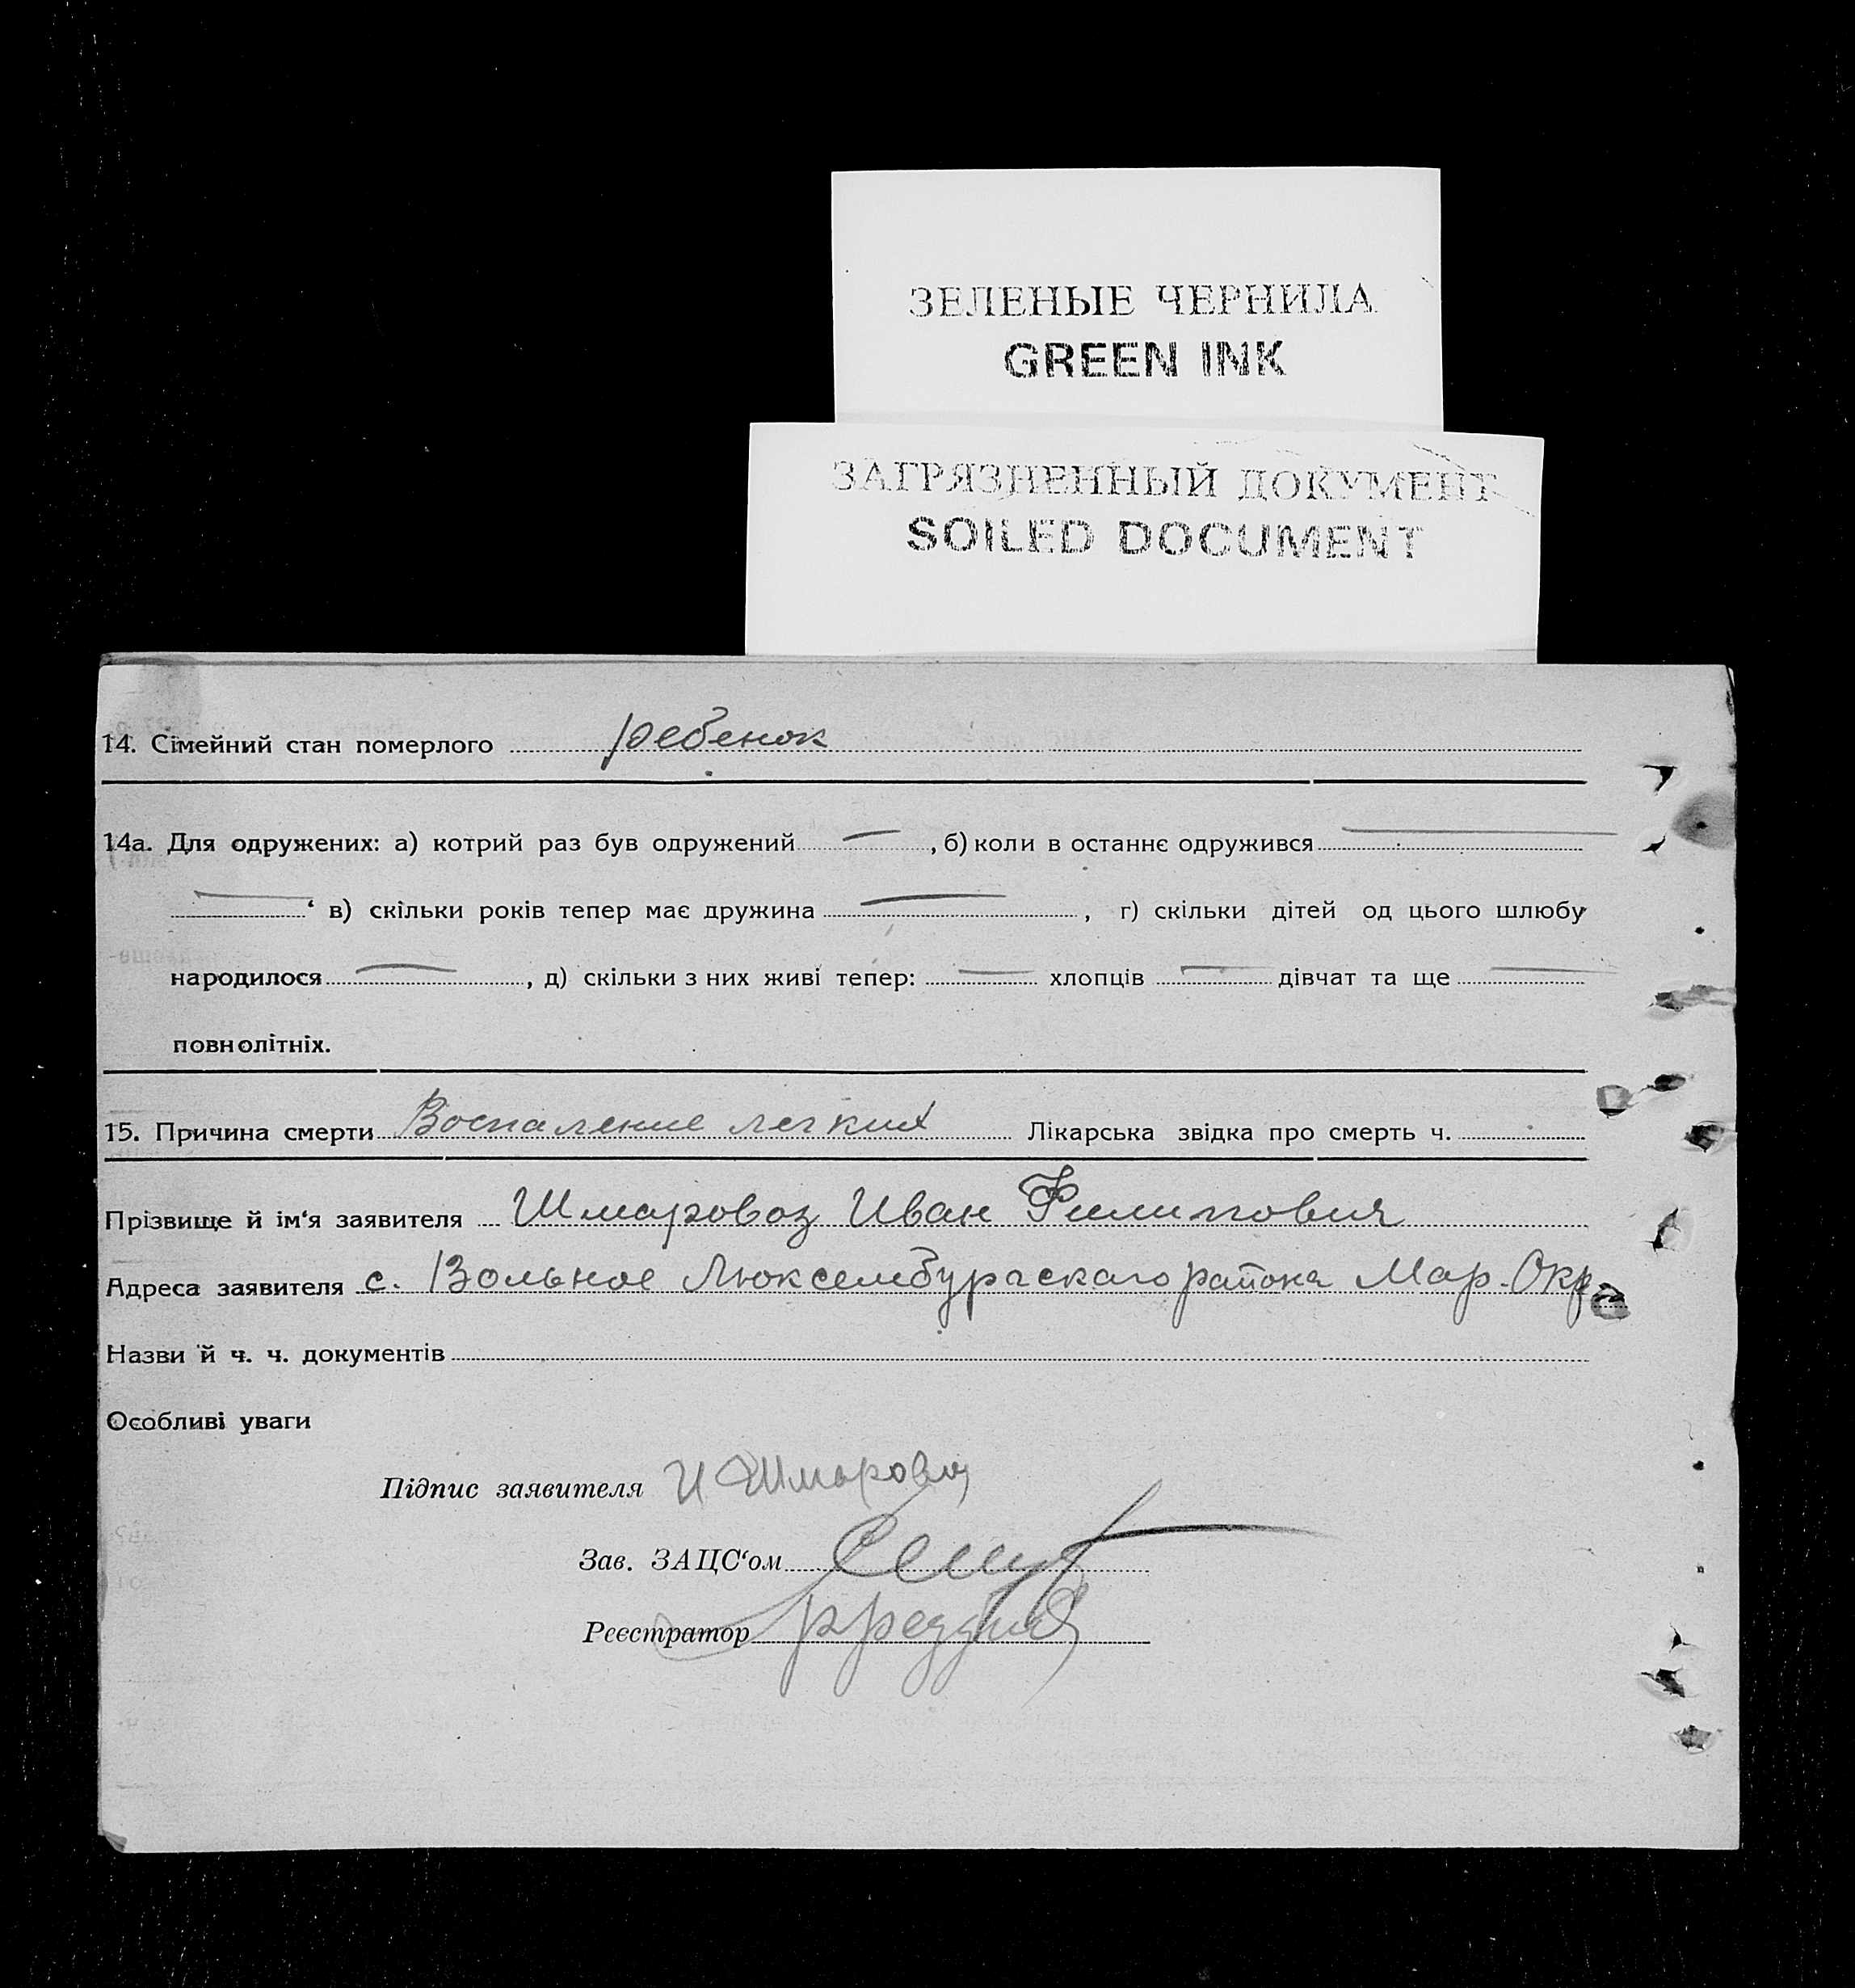 ЗЕЛЕНЫЕ ЧЕРНИЛА
GREEN INK
ЗАГРЯЗНЕННЫЙ ДОКУМЕНТ
SOILED DOCUMENT
14. Сімейний стан померлого ребенок
14а. Для одружених: а) котрий раз був одружений —, б) коли в останнє одружився —
— ‘ в) скільки років тепер має дружина —, г) скільки дітей од цього шлюбу
народилося —, д) скільки з них живі тепер: — хлопців — дівчат та ще —
повнолітніх.
15. Причина смерти Воспаление легких Лікарська звідка про смерть ч.
Прізвище й ім‘я заявителя Шмаровоз Иван Филипович
Адреса заявителя с. Вольное Люксембургскаго района Мар. Окр.
Назви й ч. ч. документів
Особливі уваги
Підпис заявителя И Шмаровоз
Зав. ЗАЦС‘ом
Реєстратор